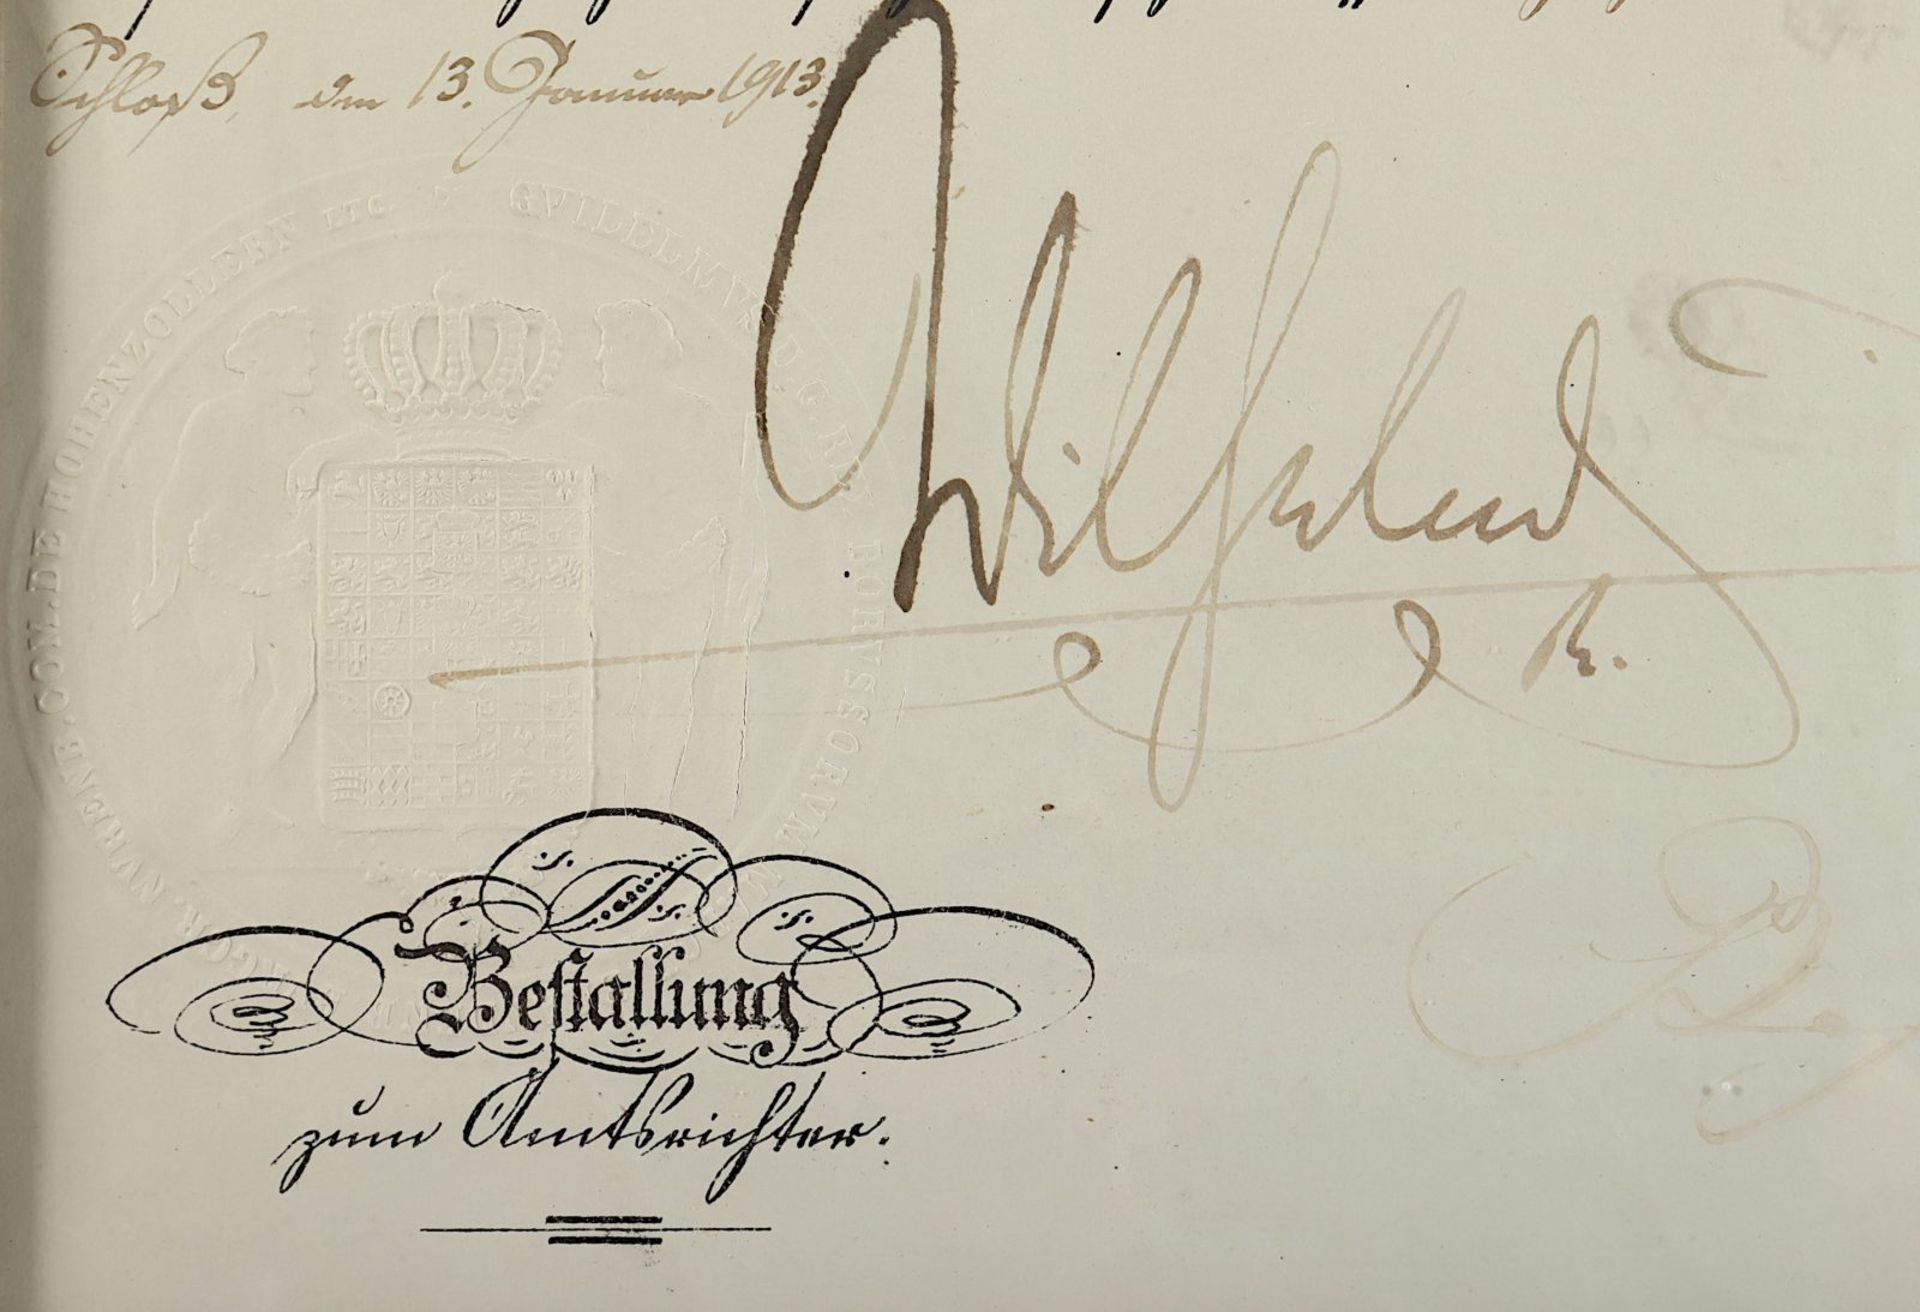 Schloß, den 13. Januar 1913.
GVILELMVS D. G. REX BORVSSORVM
NVRENB. COM. DE HOHENZOLLERN LTG.
Wilhelm
R.
Bestallung
zum Amtsrichter.